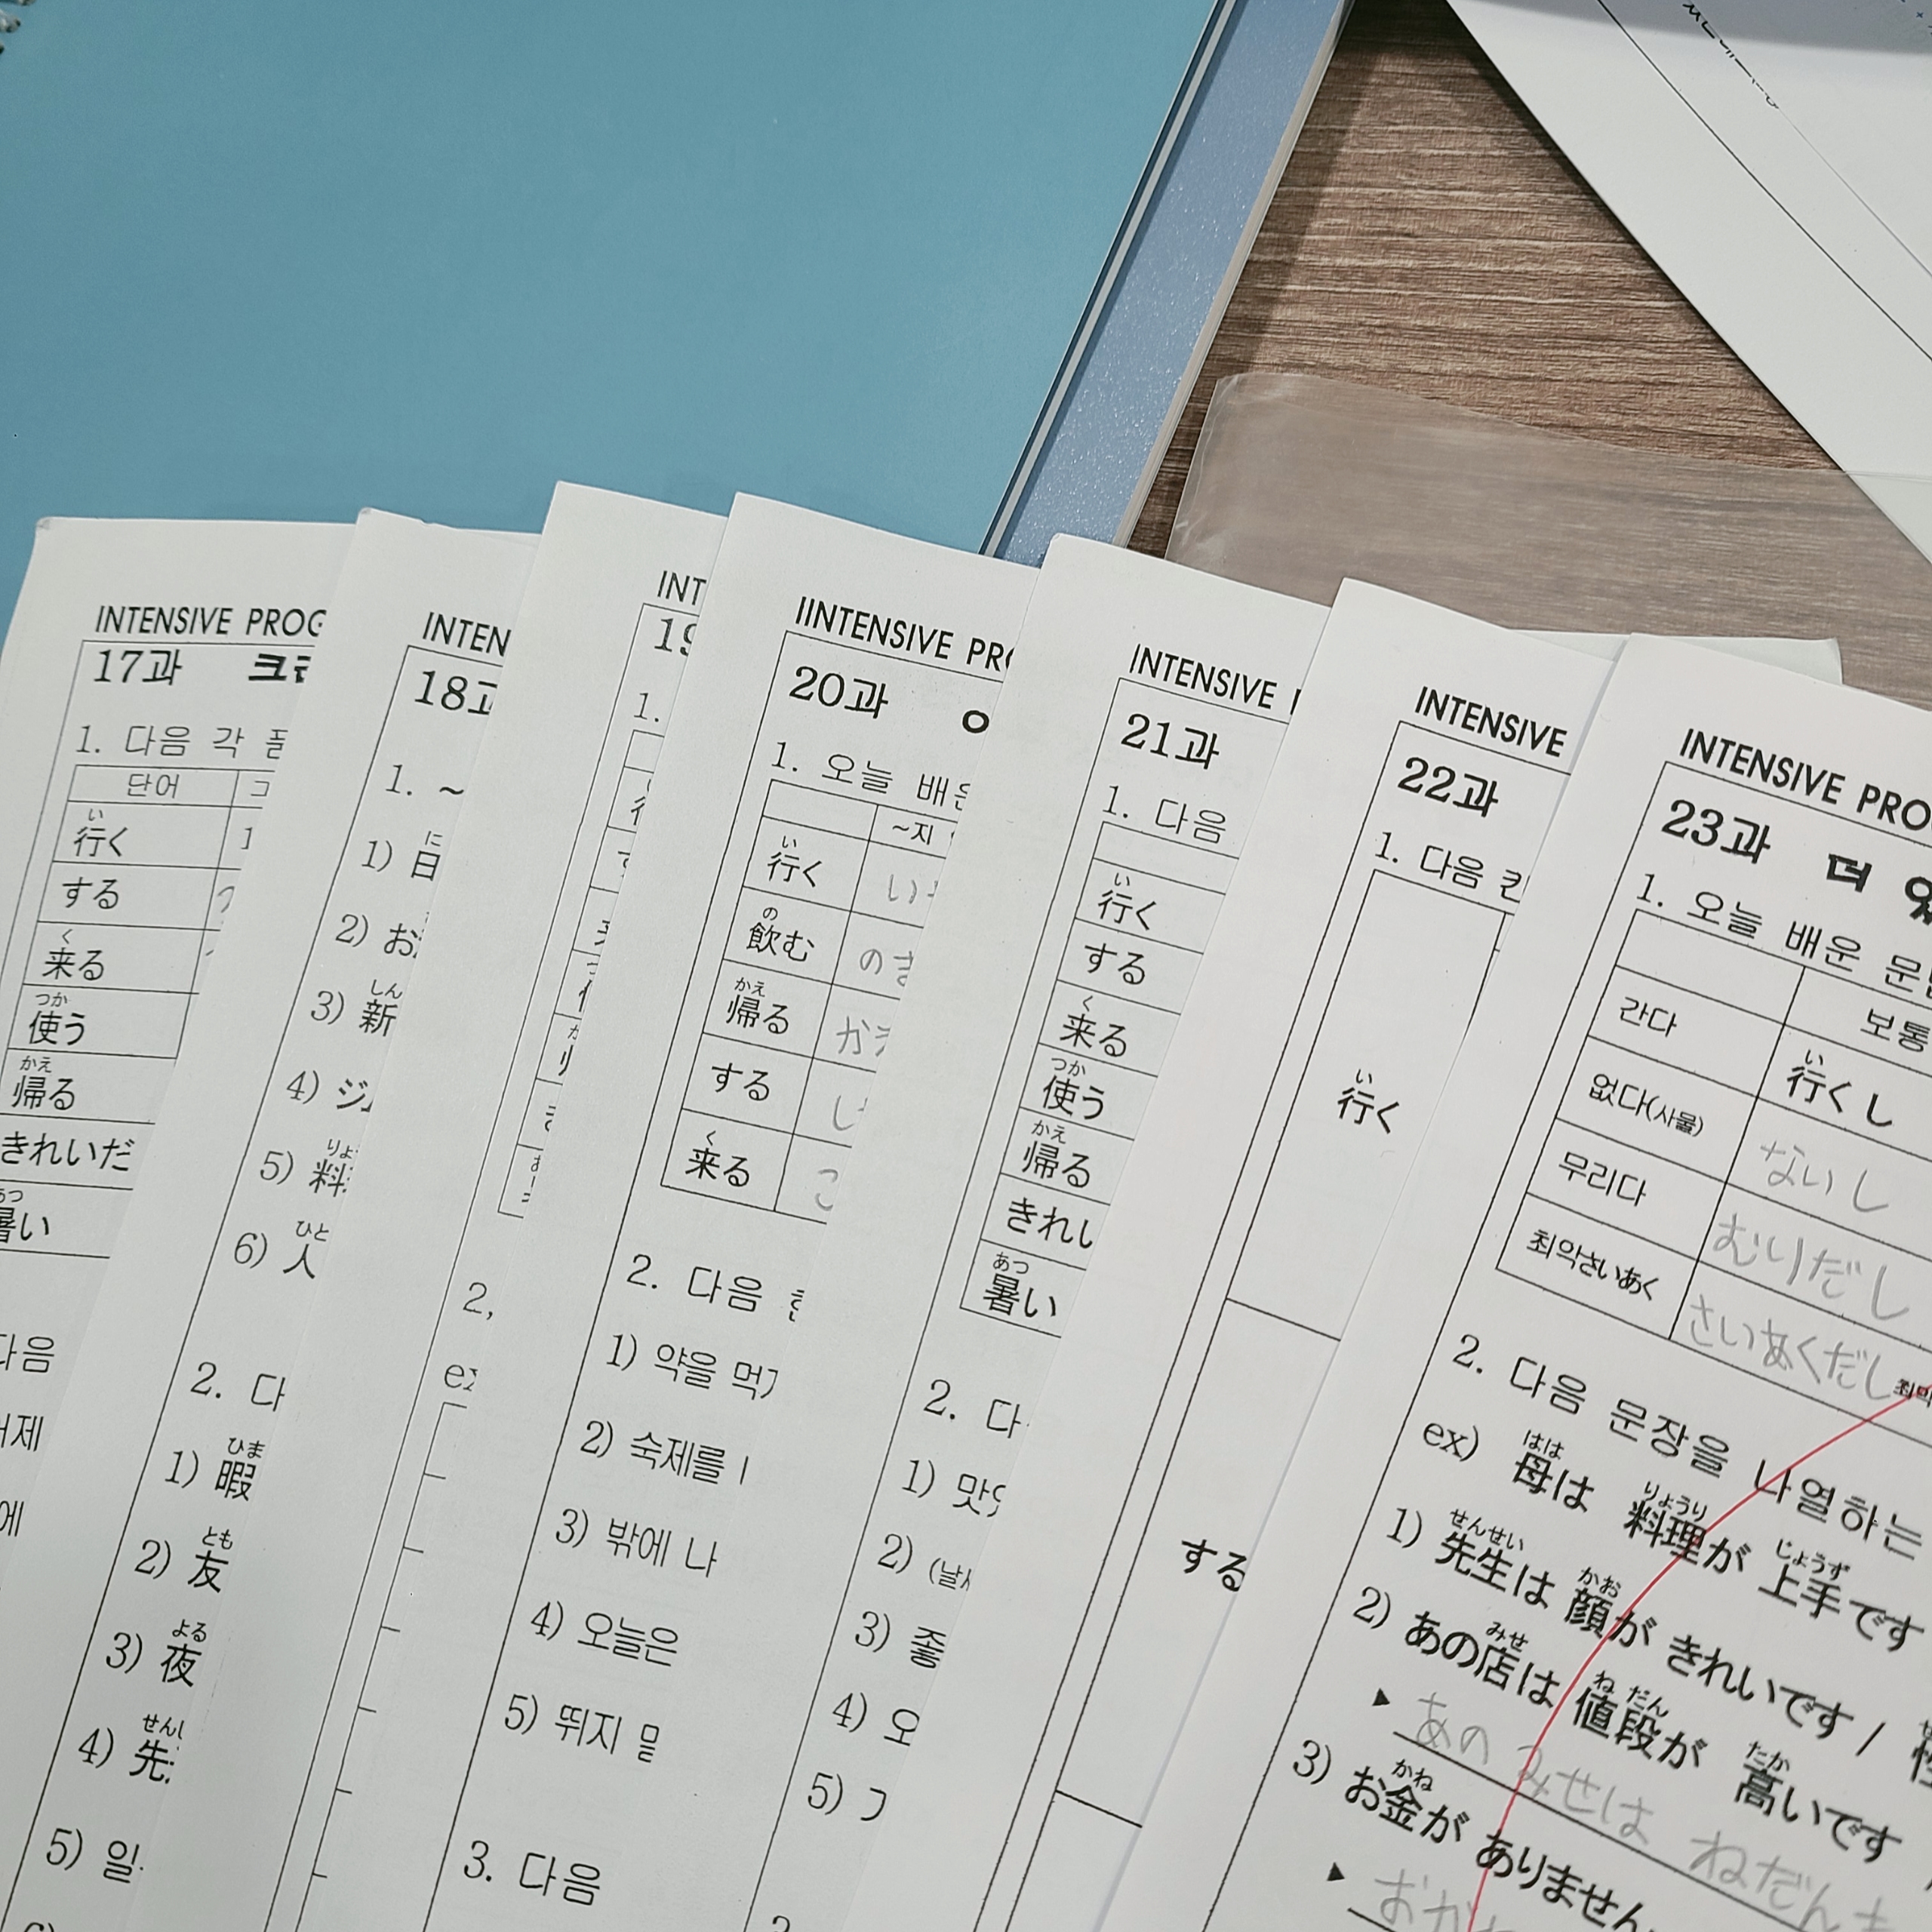 INTENSIVE
17과
1. 다음 각
단어
い
行く
する
く
来る
つか
使う
かえ
帰る
きれいだ
あつ
暑い
다음
18과
1. ~
に
1) 日
2) お
しん
3) 新
4) ジ
5) 料
ひと
6) 人
2. 다
ひま
1) 暇
とも
2) 友
よる
3) 夜
4) 先
5) 일
19
1.
2,
ex
IINTENSIVE
20과
1. 오늘 배운
~지
い
行く
の
飲む
かえ
帰る
する
く
来る
2. 다음
1) 약을 먹기
2) 숙제를
3) 밖에 나
4) 오늘은
5) 뛰지
3. 다음
INTENSIVE
21과
1. 다음
い
行く
する
く
来る
つか
使う
かえ
帰る
きれい
あつ
暑い
2. 다
1) 맛
2) (날씨
3) 좋
4) 오
5)
INTENSIVE
22과
1. 다음
い
行く
する
INTENSIVE PRO
23과 더
1. 오늘 배운
보통
간다 い
行くし
없다(사물) ないし
무리다 むりだし
최악さいあく さいあくだし
2. 다음 문장을 나열하는
ex) 母(はは)は 料理(りょうり)が 上手(じょうず)です
1) 先生(せんせい)は 顔(かお)が きれいです /
2) あの店(みせ)は 値段(ねだん)が 高(たか)いです
▶ あの みせは ねだん
3) お金(かね)が ありません
▶ おかね